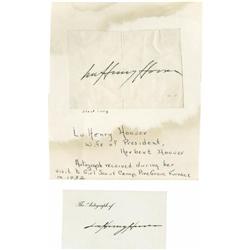 Lou Henry Hoover
Lu Henry Hoover
Wife of President,
Herbert Hoover
Autograph received during her
visit to Girl Scout Camp, Pine Grove Furnace
in 1932
The Autograph of
Lou Henry Hoover